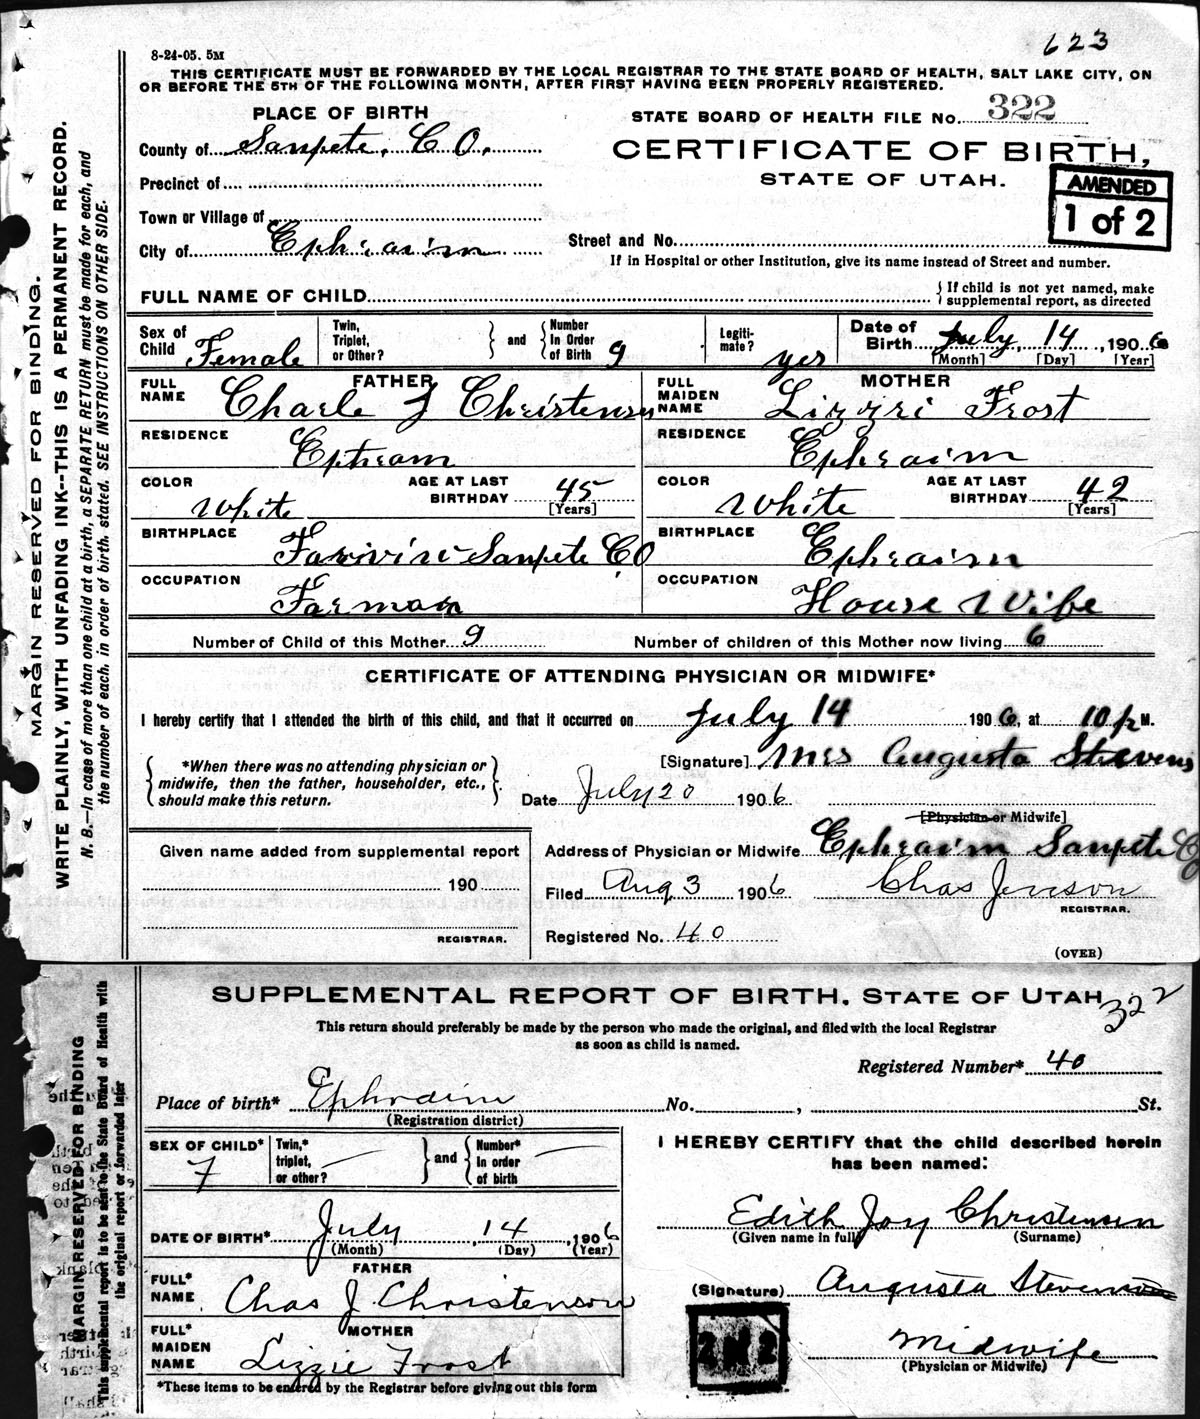 623
8-24-05. 5M
THIS CERTIFICATE MUST BE FORWARDED BY THE LOCAL REGISTRAR TO THE STATE BOARD OF HEALTH, SALT LAKE CITY, ON
OR BEFORE THE 5TH OF THE FOLLOWING MONTH, AFTER FIRST HAVING BEEN PROPERLY REGISTERED.
PLACE OF BIRTH
STATE BOARD OF HEALTH FILE No. 322
County of Sanpete. C O.
CERTIFICATE OF BIRTH,
STATE OF UTAH.
Precinct of
AMENDED
1 of 2
Town or Village of
City of Ephraim
Street and No.
If in Hospital or other Institution, give its name instead of Street and number.
FULL NAME OF CHILD
If child is not yet named, make
supplemental report, as directed
Sex of Child Female
Twin, Triplet, or Other?
and
Number In Order of Birth 9
Legitimate? yes
Date of Birth July 14, 1906
[Month] [Day] [Year]
FATHER
FULL NAME Charle J Christensen
MOTHER
FULL MAIDEN NAME Lizzri Frost
RESIDENCE Ephram
RESIDENCE Ephraim
COLOR White
AGE AT LAST BIRTHDAY 45
[Years]
COLOR White
AGE AT LAST BIRTHDAY 42
[Years]
BIRTHPLACE Sanpete CO
BIRTHPLACE Ephraim
OCCUPATION Farmar
OCCUPATION House Wife
Number of Child of this Mother 9
Number of children of this Mother now living 6
CERTIFICATE OF ATTENDING PHYSICIAN OR MIDWIFE*
I hereby certify that I attended the birth of this child, and that it occurred on July 14 1906, at 10 p M.
*When there was no attending physician or
midwife, then the father, householder, etc.,
should make this return.
[Signature] Mrs Augusta Stevens
Date July 20 1906
[Physician or Midwife]
Given name added from supplemental report
190
REGISTRAR.
Address of Physician or Midwife Ephraim Sanpete Co
Filed Aug 3 1906 Chas Jenson
REGISTRAR.
Registered No. 40
(OVER)
MARGIN RESERVED FOR BINDING.
WRITE PLAINLY, WITH UNFADING INK--THIS IS A PERMANENT RECORD.
N. B.—In case of more than one child at a birth, a SEPARATE RETURN must be made for each, and
the number of each, in order of birth, stated. SEE INSTRUCTIONS ON OTHER SIDE.
SUPPLEMENTAL REPORT OF BIRTH. STATE OF UTAH
322
This return should preferably be made by the person who made the original, and filed with the local Registrar
as soon as child is named.
Registered Number* 40
Place of birth* Ephraim No. , St.
(Registration district)
SEX OF CHILD* F
Twin,* triplet, or other?
and
Number* in order of birth
I HEREBY CERTIFY that the child described herein
has been named:
DATE OF BIRTH* July 14, 1906
(Month) (Day) (Year)
Edith Joy Christensen
(Given name in full) (Surname)
FATHER
FULL* NAME Chas J. Christenson
(Signature) Augusta Stevens
MOTHER
FULL* MAIDEN NAME Lizzie Frost
2 of 2
Midwife
(Physician or Midwife)
*These items to be entered by the Registrar before giving out this form
MARGIN RESERVED FOR BINDING
This supplemental report is to be sent to the State Board of Health with
the original report or forwarded later